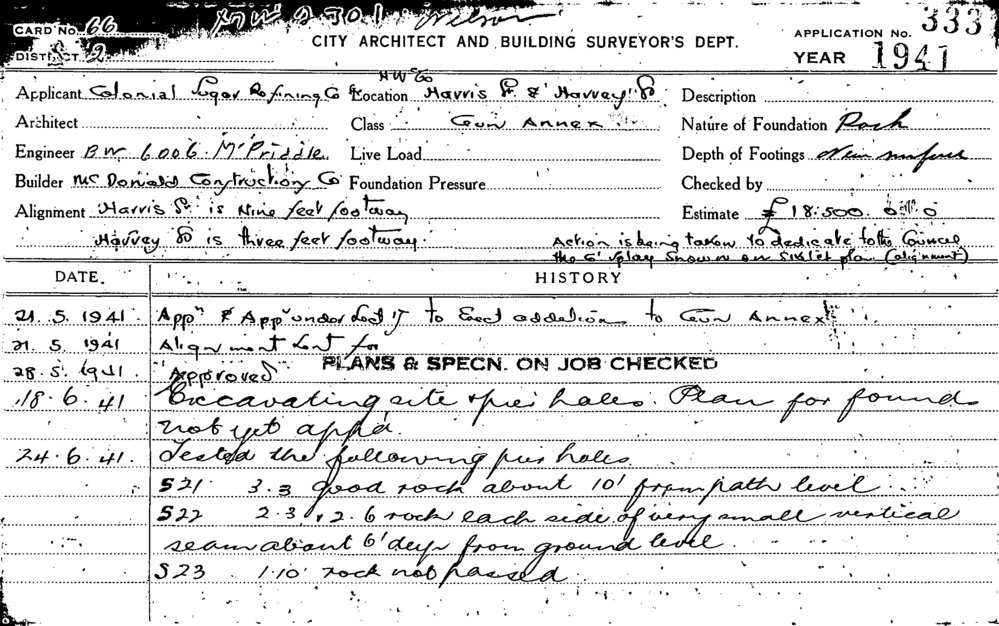 Wilson
CARD No. 66
DISTRICT 2
CITY ARCHITECT AND BUILDING SURVEYOR'S DEPT.
APPLICATION No. 333
YEAR 1941
Applicant Colonial Sugar Refining Co
Location Harris St & Harvey St
Description
Architect
Class Gun Annex
Nature of Foundation Rock
Engineer BW 6006 McPriddle
Live Load
Depth of Footings
Builder McDonald Construction Co
Foundation Pressure
Checked by
Alignment Harris St. is Nine feet footway
Estimate £18.500. 0. 0
Harvey St is three feet footway.
Action is being taken to dedicate to the Council
the 6' splay shown on plan (alignment)
DATE.
HISTORY
21. 5. 1941 Appn & Appn under to Erect addition to Gun Annex
21. 5. 1941 Alignment for
PLANS & SPECN. ON JOB CHECKED
28. 5. 1941 Approved
18. 6. 41 Excavating site & pier holes. Plan for founds
not yet appd.
24. 6. 41. Tested the following pier holes
S21 3.3 good rock about 10' from path level
S22 2.3 & 2.6 rock each side of very small vertical
seam about 6' deep from ground level.
S23 1.10' rock not passed